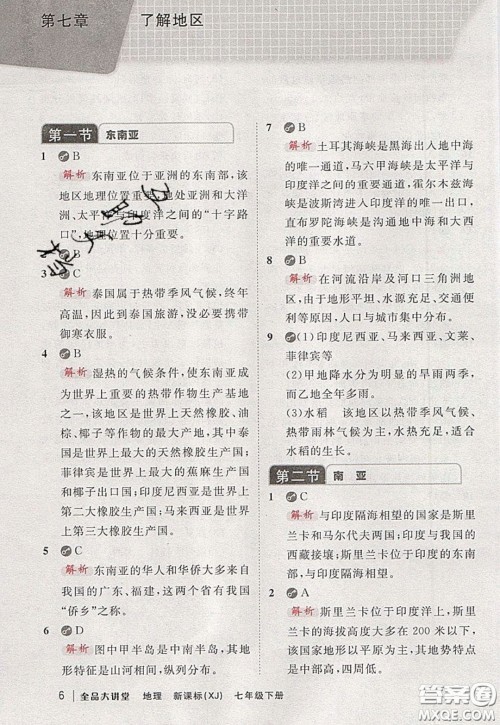 第七章 了解地区
第一节 东南亚
1 B
解析 东南亚位于亚洲的东南部,该
地区地理位置重要,地处亚洲和大洋
洲、太平洋与印度洋之间的“十字路
口”,地理位置十分重要。
2 B
3 C
解析 泰国属于热带季风气候,终年
高温,因此到泰国旅游,没必要携带
御寒衣服。
4 B
解析 湿热的气候条件,使东南亚
成为世界上热带作物生产基地
之一,该地区是世界上天然橡胶、油
棕、椰子等的最大产地。其中,泰国
是世界最大的天然橡胶生产国;
菲律宾是世界上最大的蕉麻生产国
和椰子出口国;印度尼西亚是世界上
第二大橡胶生产国;马来西亚是世界
上第三大橡胶生产国。
5 C
解析 东南亚的华人和华侨大多来自
我国的广东、福建,这两地被誉为
“侨乡”之称。
6 D
解析 图中甲半岛是中南半岛,其地
形特点是山河相间,纵列分布。
7 B
解析 土耳其海峡是黑海出入地中海
的唯一通道,马六甲海峡是太平洋与
印度洋的重要通道,霍尔木兹海
峡是波斯湾进入印度洋的唯一出口,
直布罗陀海峡是沟通地中海与大西洋
的重要水道。
8 B
解析 在河流沿岸及河口三角洲地
区,由于地形平坦、水源充足、交通便
利等原因,人口与城市集中分布。
9 (1)印度尼西亚、马来西亚、文莱、
菲律宾等
(2)甲地降水分为明显的旱雨两季,
而乙地全年多雨。
(3)水稻 该地区以热带季风气候、
热带雨林气候为主,水热充足,适合
水稻的生长。
第二节 南亚
1 C
解析 与印度隔海相望的国家是斯里
兰卡和马尔代夫两国;与我国的
西藏自治区相邻的是印度;斯里兰卡
与印度隔海相望。
2 A
解析 斯里兰卡位于印度洋上,岛上
大部分地区的海拔高度在 200 米以
6 全品大讲堂 地理 新课标(XJ) 七年级下册